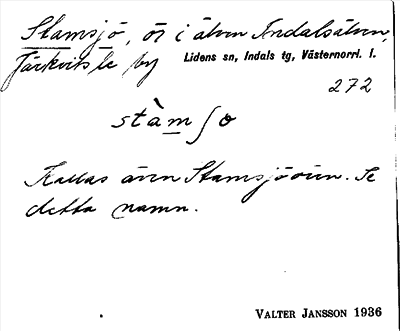 Stamsjö, ör i älven Indalsälven,
Järkvitsle by Lidens sn, Indals tg, Västernorrl. l.
272
stàmʃo
Kallas även Stamsjöören. Se
detta namn.
VALTER JANSSON 1936